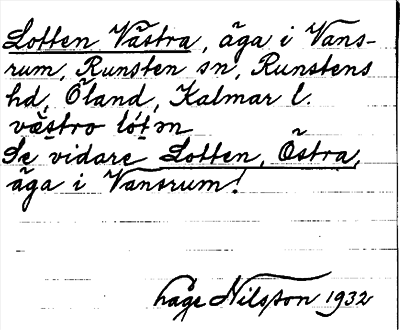 Lotten Västra, äga i Vans-
rum, Runsten sn, Runstens
hd, Öland, Kalmar l.
væstro lót̠ən
Se vidare Lotten, Östra,
äga i Vansrum!
Håge Nilsson 1932